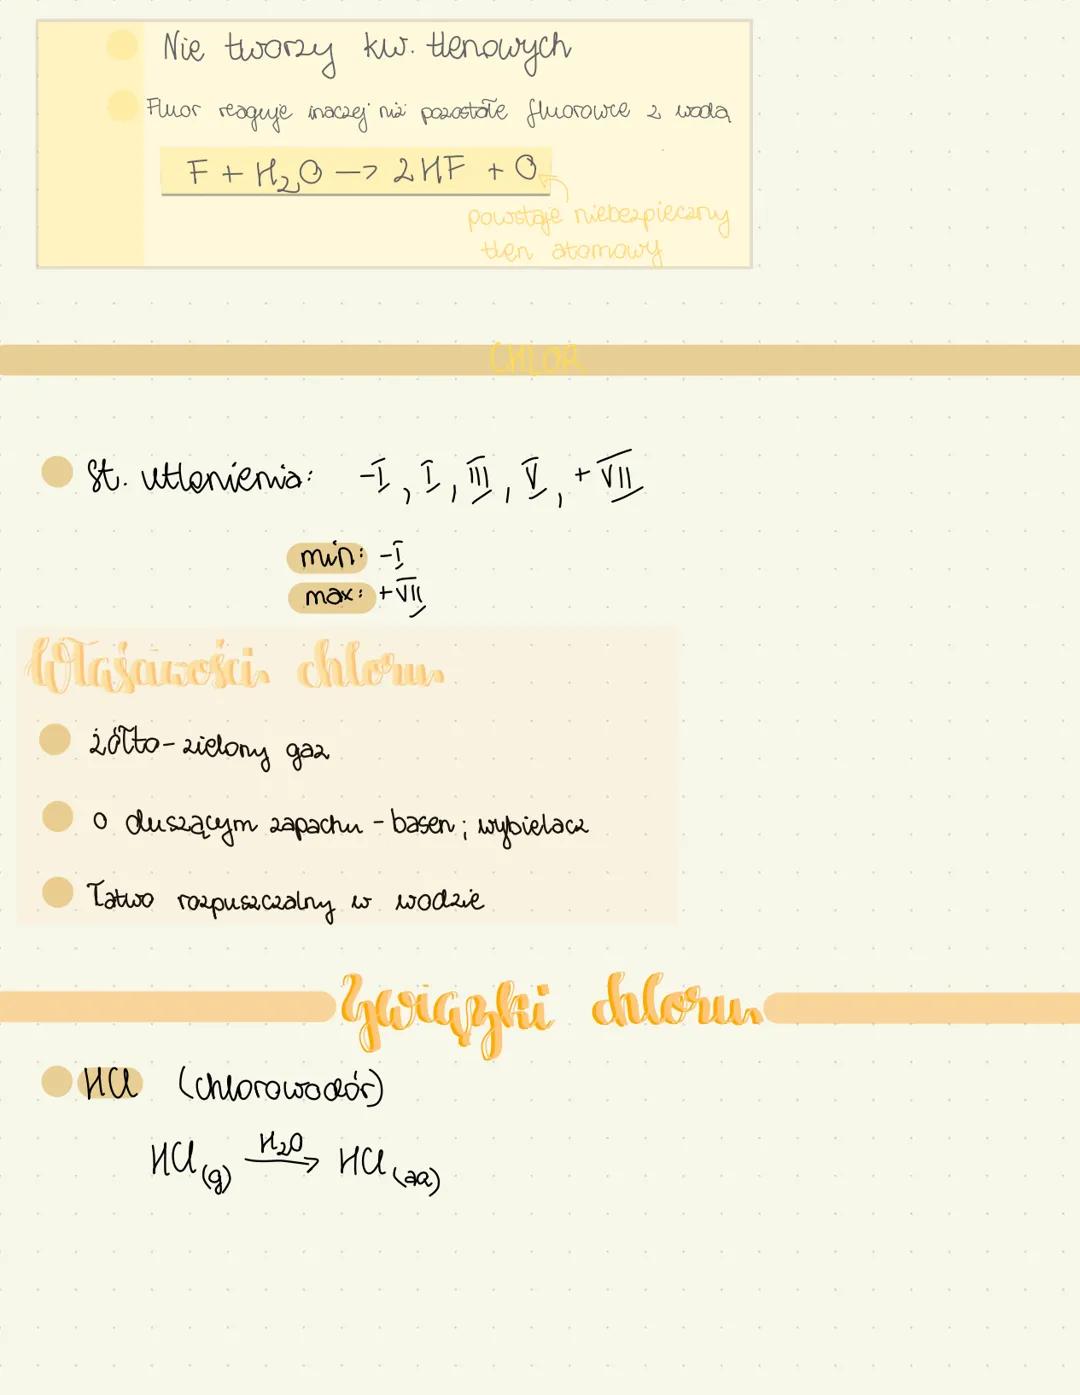 Nie tworzy kw. tlenowych
Fluor reaguje inaczej niż pozostałe fluorowce z wodą
F + H₂O → 2HF + O
powstaje niebezpieczny
tlen atomowy
CHLOR
St. utlenienia: -I, I, III, V, +VII
min: -I
max: +VII
Właściwości chloru
żółto-zielony gaz
o duszącym zapachu - basen; wybielacz
łatwo rozpuszczalny w wodzie
Związki chloru
HCl (chlorowodór)
HCl(g) H₂O→ HCl(aq)